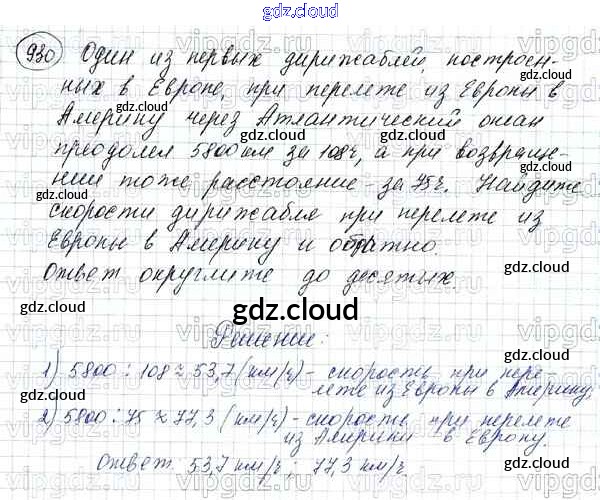 gdz.cloud
930 Один из первых дирижаблей, построен-
ных в Европе, при перелете из Европы в
Америку через Атлантический океан
преодолел 5800 км за 108ч, а при возвраще-
нии тоже расстояние - за 75ч. Найдите
скорости дирижабля при перелете из
Европы в Америку и обратно.
Ответ округлите до десятых.
gdz.cloud
Решение:
1) 5800 : 108 ≈ 53,7 (км/ч) - скорость при пере-
лете из Европы в Америку,
2) 5800 : 75 ≈ 77,3 (км/ч) - скорость при перелете
из Америки в Европу.
Ответ 53,7 км/ч ; 77,3 км/ч